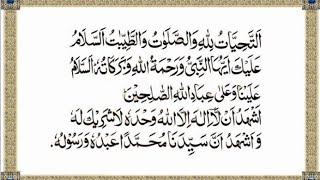 اَلتَّحِيَّاتُ لِلّٰهِ وَالصَّلَوٰتُ وَالطَّيِّبٰتُ اَلسَّلَامُ
عَلَيْكَ اَيُّهَا النَّبِىُّ وَرَحْمَةُ اللهِ وَبَرَكَاتُهُ اَلسَّلَامُ
عَلَيْنَا وَعَلٰى عِبَادِ اللهِ الصّٰلِحِيْنَ
اَشْهَدُ اَنْ لَّا اِلٰهَ اِلَّا اللهُ وَحْدَهُ لَا شَرِيْكَ لَهُ
وَاَشْهَدُ اَنَّ سَيِّدَنَا مُحَمَّدًا عَبْدُهُ وَرَسُوْلُهُ.